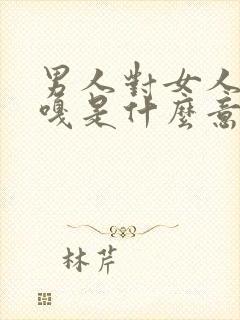 男人對女人
嘎是什麼意
林芹